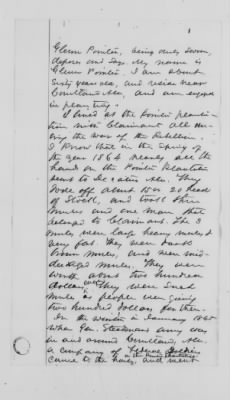 Glenn Pointer, being duly sworn,
deposes and says. My name is
Glenn Pointer. I am about
sixty years old, and reside near
Courtland Ala, and am engaged
in planting.
I lived at the Pointer planta-
tion with Claimant all du-
ring the war of the Rebellion.
I know that in the Spring of
the year 1864 nearly all the
hands on the Pointer Plantation
went to Decatur Ala. They
rode off about 10 or 20 head
of Stock, and took three
mules and one mare that
belonged to Claimant. The 3
mules were large heavy mules &
very fat. They were dark
brown mules, and were mid-
dle aged mules. They were
worth about two hundred
dollars. They were such
mules as people were giving
two hundred dollars for then.
In the winter in January 1865
when Gen. Steadmans army was
in and around Courtland, Ala.
a company of
came to the house, and went